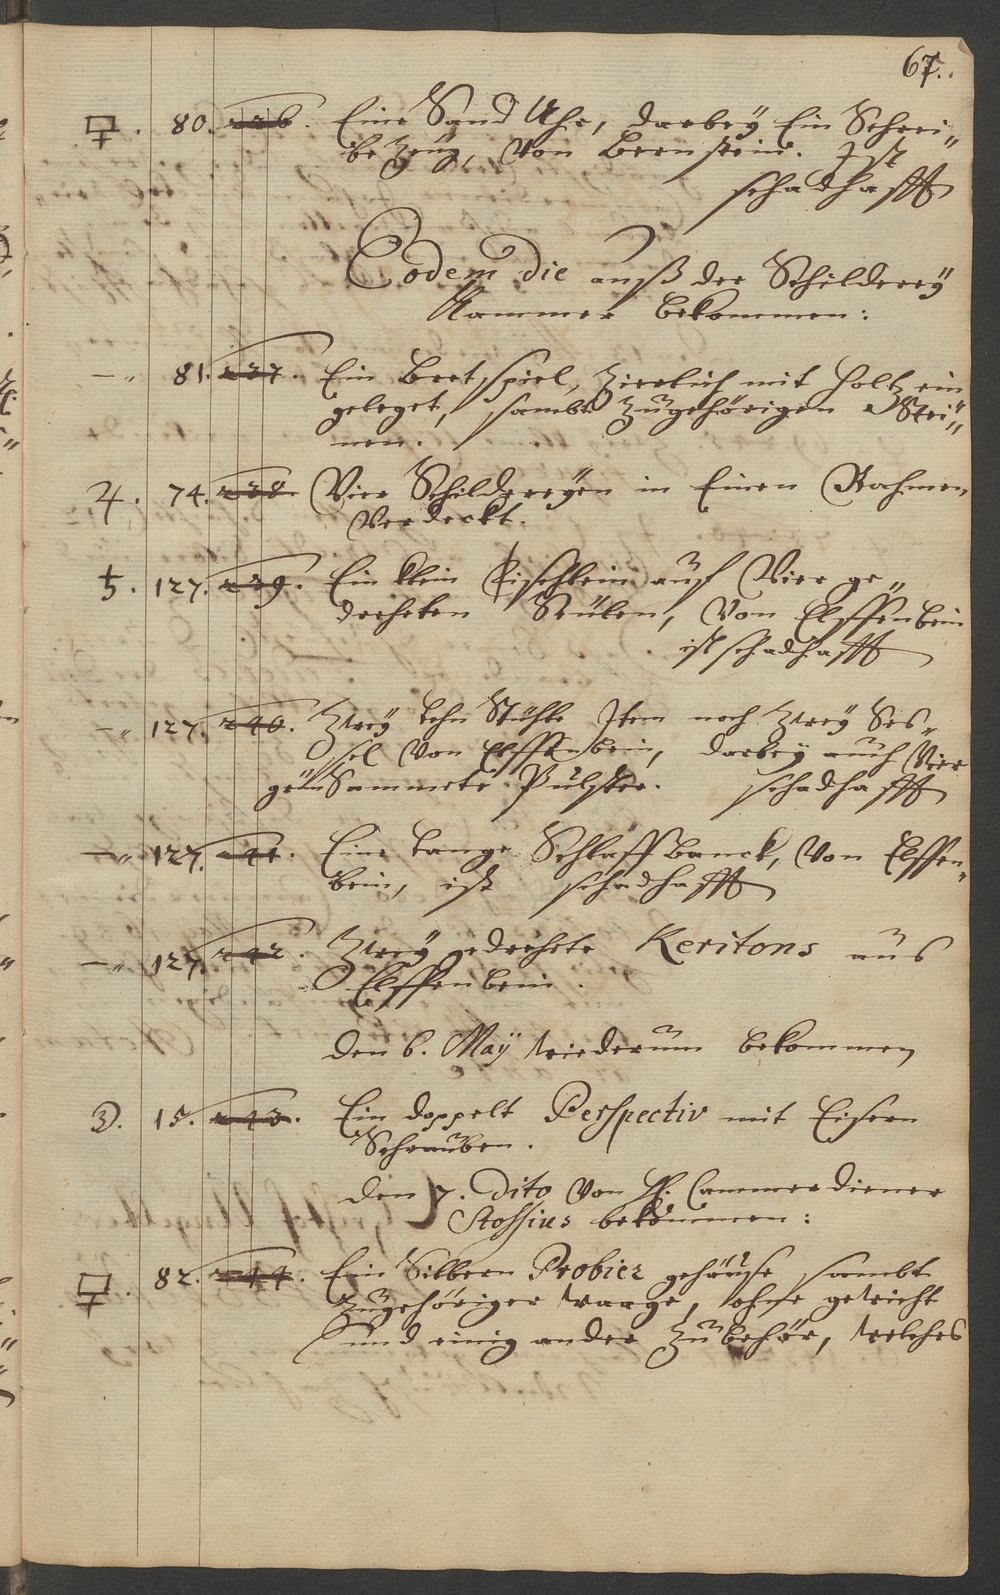 67.
🜖. 80. 236. Eine Sand Uhr, darbeÿ Ein Schrei„
be Zeüg, Von Bernstein. Ist
schadhafft
Eodem die auß der Schildereÿ
Kammer bekommen:
—„ 81. 237. Ein Bret„spiel, Zierlich mit Holtz ein
geleget, sambt Zugehörigen Stei„
nen.
♃. 74. 238. Vier Schildereÿen in Einen Rahmen
Verdeckt.
♄. 127. 239. Ein klein Tischlein auff Vier ge„
dreheten Seülen, Von Elffenbein
ist schadhafft
—„ 127. 240. Zweÿ Lehn Stühle Item noch Zweÿ Ses„
sel Von Elffenbein, darbeÿ auch Vier
grün Sammete Pulster. schadhafft
—„ 127. 241. Eine Lange Schlaff Banck, Von Elffen„
bein, ist schadhafft
—„ 127. 242. Zweÿ gedrehete Keritons aus
Elffenbein.
Den 6. Maÿ wiederum bekommen
☽. 15. 243. Ein doppelt Perspectiv mit Eisern
Schrauben.
Den 7. Dito Von H. Cammerdiener
Stossius bekommen:
🜖. 82. 244. Ein Silbern Probier gehäuse sambt
Zugehöriger waage, ohne gewicht
und einig ander Zubehör, welches